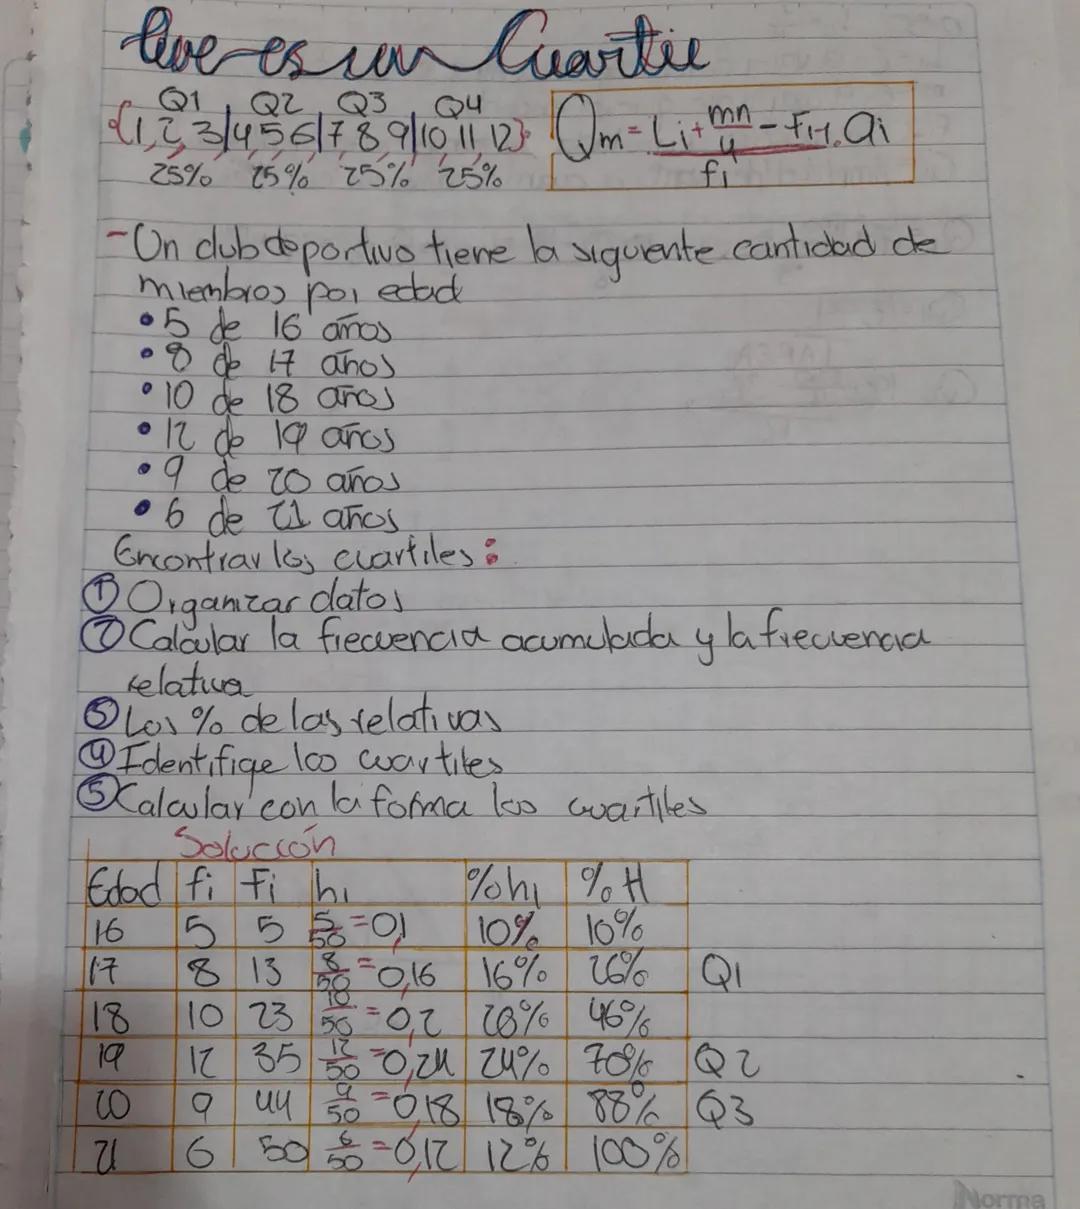 Que es un Cuartil
Q1 Q2 Q3 Q4
{1, 2, 3|4 5 6|7 8 9|10 11 12}
25% 25% 25% 25%
Qm = Li + mn/4 - Fi-1 . ai
fi
- Un club deportivo tiene la siguiente cantidad de
miembros por edad
• 5 de 16 años
• 8 de 17 años
• 10 de 18 años
• 12 de 19 años
• 9 de 20 años
• 6 de 21 años
Encontrar los cuartiles:
① Organizar datos
② Calcular la frecuencia acumulada y la frecuencia
relativa
③ Los % de las relativas
④ Identifiqe los cuartiles
⑤ Calcular con la forma los cuartiles
Solución
Edad fi Fi hi %hi %H
16 5 5 5/50 = 0,1 10% 10%
17 8 13 8/50 = 0,16 16% 26% Q1
18 10 23 10/50 = 0,2 20% 46%
19 12 35 12/50 = 0,24 24% 70% Q2
20 9 44 9/50 = 0,18 18% 88% Q3
21 6 50 6/50 = 0,12 12% 100%
Norma